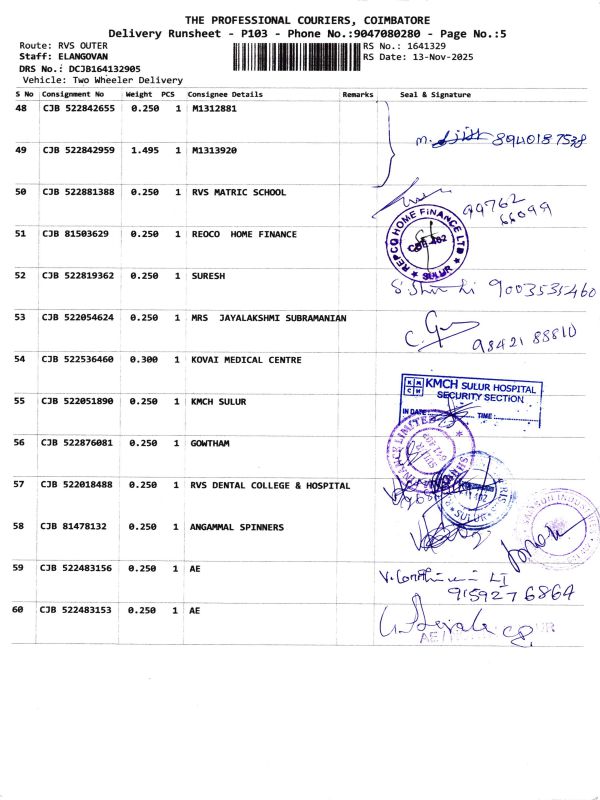 THE PROFESSIONAL COURIERS, COIMBATORE
Delivery Runsheet - P103 - Phone No.:9047080280 - Page No.:5
Route: RVS OUTER RS No.: 1641329
Staff: ELANGOVAN RS Date: 13-Nov-2025
DRS No.: DCJB164132905
Vehicle: Two Wheeler Delivery
S No Consignment No Weight PCS Consignee Details Remarks Seal & Signature
48 CJB 522842655 0.250 1 M1312881
8940187538
49 CJB 522842959 1.495 1 M1313920
50 CJB 522881388 0.250 1 RVS MATRIC SCHOOL
99762
66099
51 CJB 81503629 0.250 1 REOCO HOME FINANCE
REPCO HOME FINANCE LTD
CBE-402
SULUR
52 CJB 522819362 0.250 1 SURESH
9003535460
53 CJB 522054624 0.250 1 MRS JAYALAKSHMI SUBRAMANIAN
98421 88810
54 CJB 522536460 0.300 1 KOVAI MEDICAL CENTRE
55 CJB 522051890 0.250 1 KMCH SULUR
KMCH SULUR HOSPITAL
SECURITY SECTION
IN DATE: TIME:
56 CJB 522876081 0.250 1 GOWTHAM
57 CJB 522018488 0.250 1 RVS DENTAL COLLEGE & HOSPITAL
SULUR
58 CJB 81478132 0.250 1 ANGAMMAL SPINNERS
59 CJB 522483156 0.250 1 AE
9159276864
60 CJB 522483153 0.250 1 AE